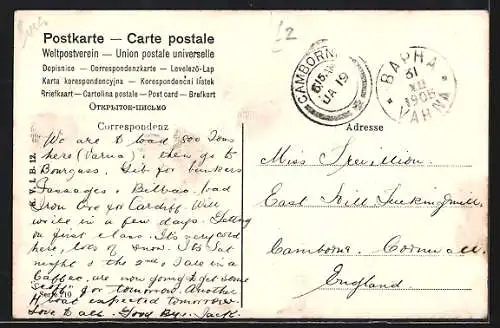 £2
Postkarte — Carte postale
Weltpostverein — Union postale universelle
Dopisnice — Correspondenzkarte — Levelező-Lap
Karta korespondencyjna — Korespondenční lístek
Briefkaart — Cartolina postale — Post card — Brefkort
Открытое-письмо
CAMBORNE
515PM
JA 19
ВАРНА
31
XII
1905
VARNA
Correspondenz
Adresse
We are to load 800 Tons
here (Varna), then go to
Bourgass, Gib for bunkers
Passages & Bilbao, load
Iron Ore for Cardiff. Will
write in a few days. Getting
on first class. It's very cold
here, lots of snow. It's Sat
night & the 2nd & I are in a
Caffee, are now going to get some
stuff for tomorrow. Another
boat expected tomorrow
Love to all. Good Bye. Jack
Miss Trevillion
East Hill Tuckingmill,
Camborne, Cornwall,
England
V. J. B. 12.
Serie 710